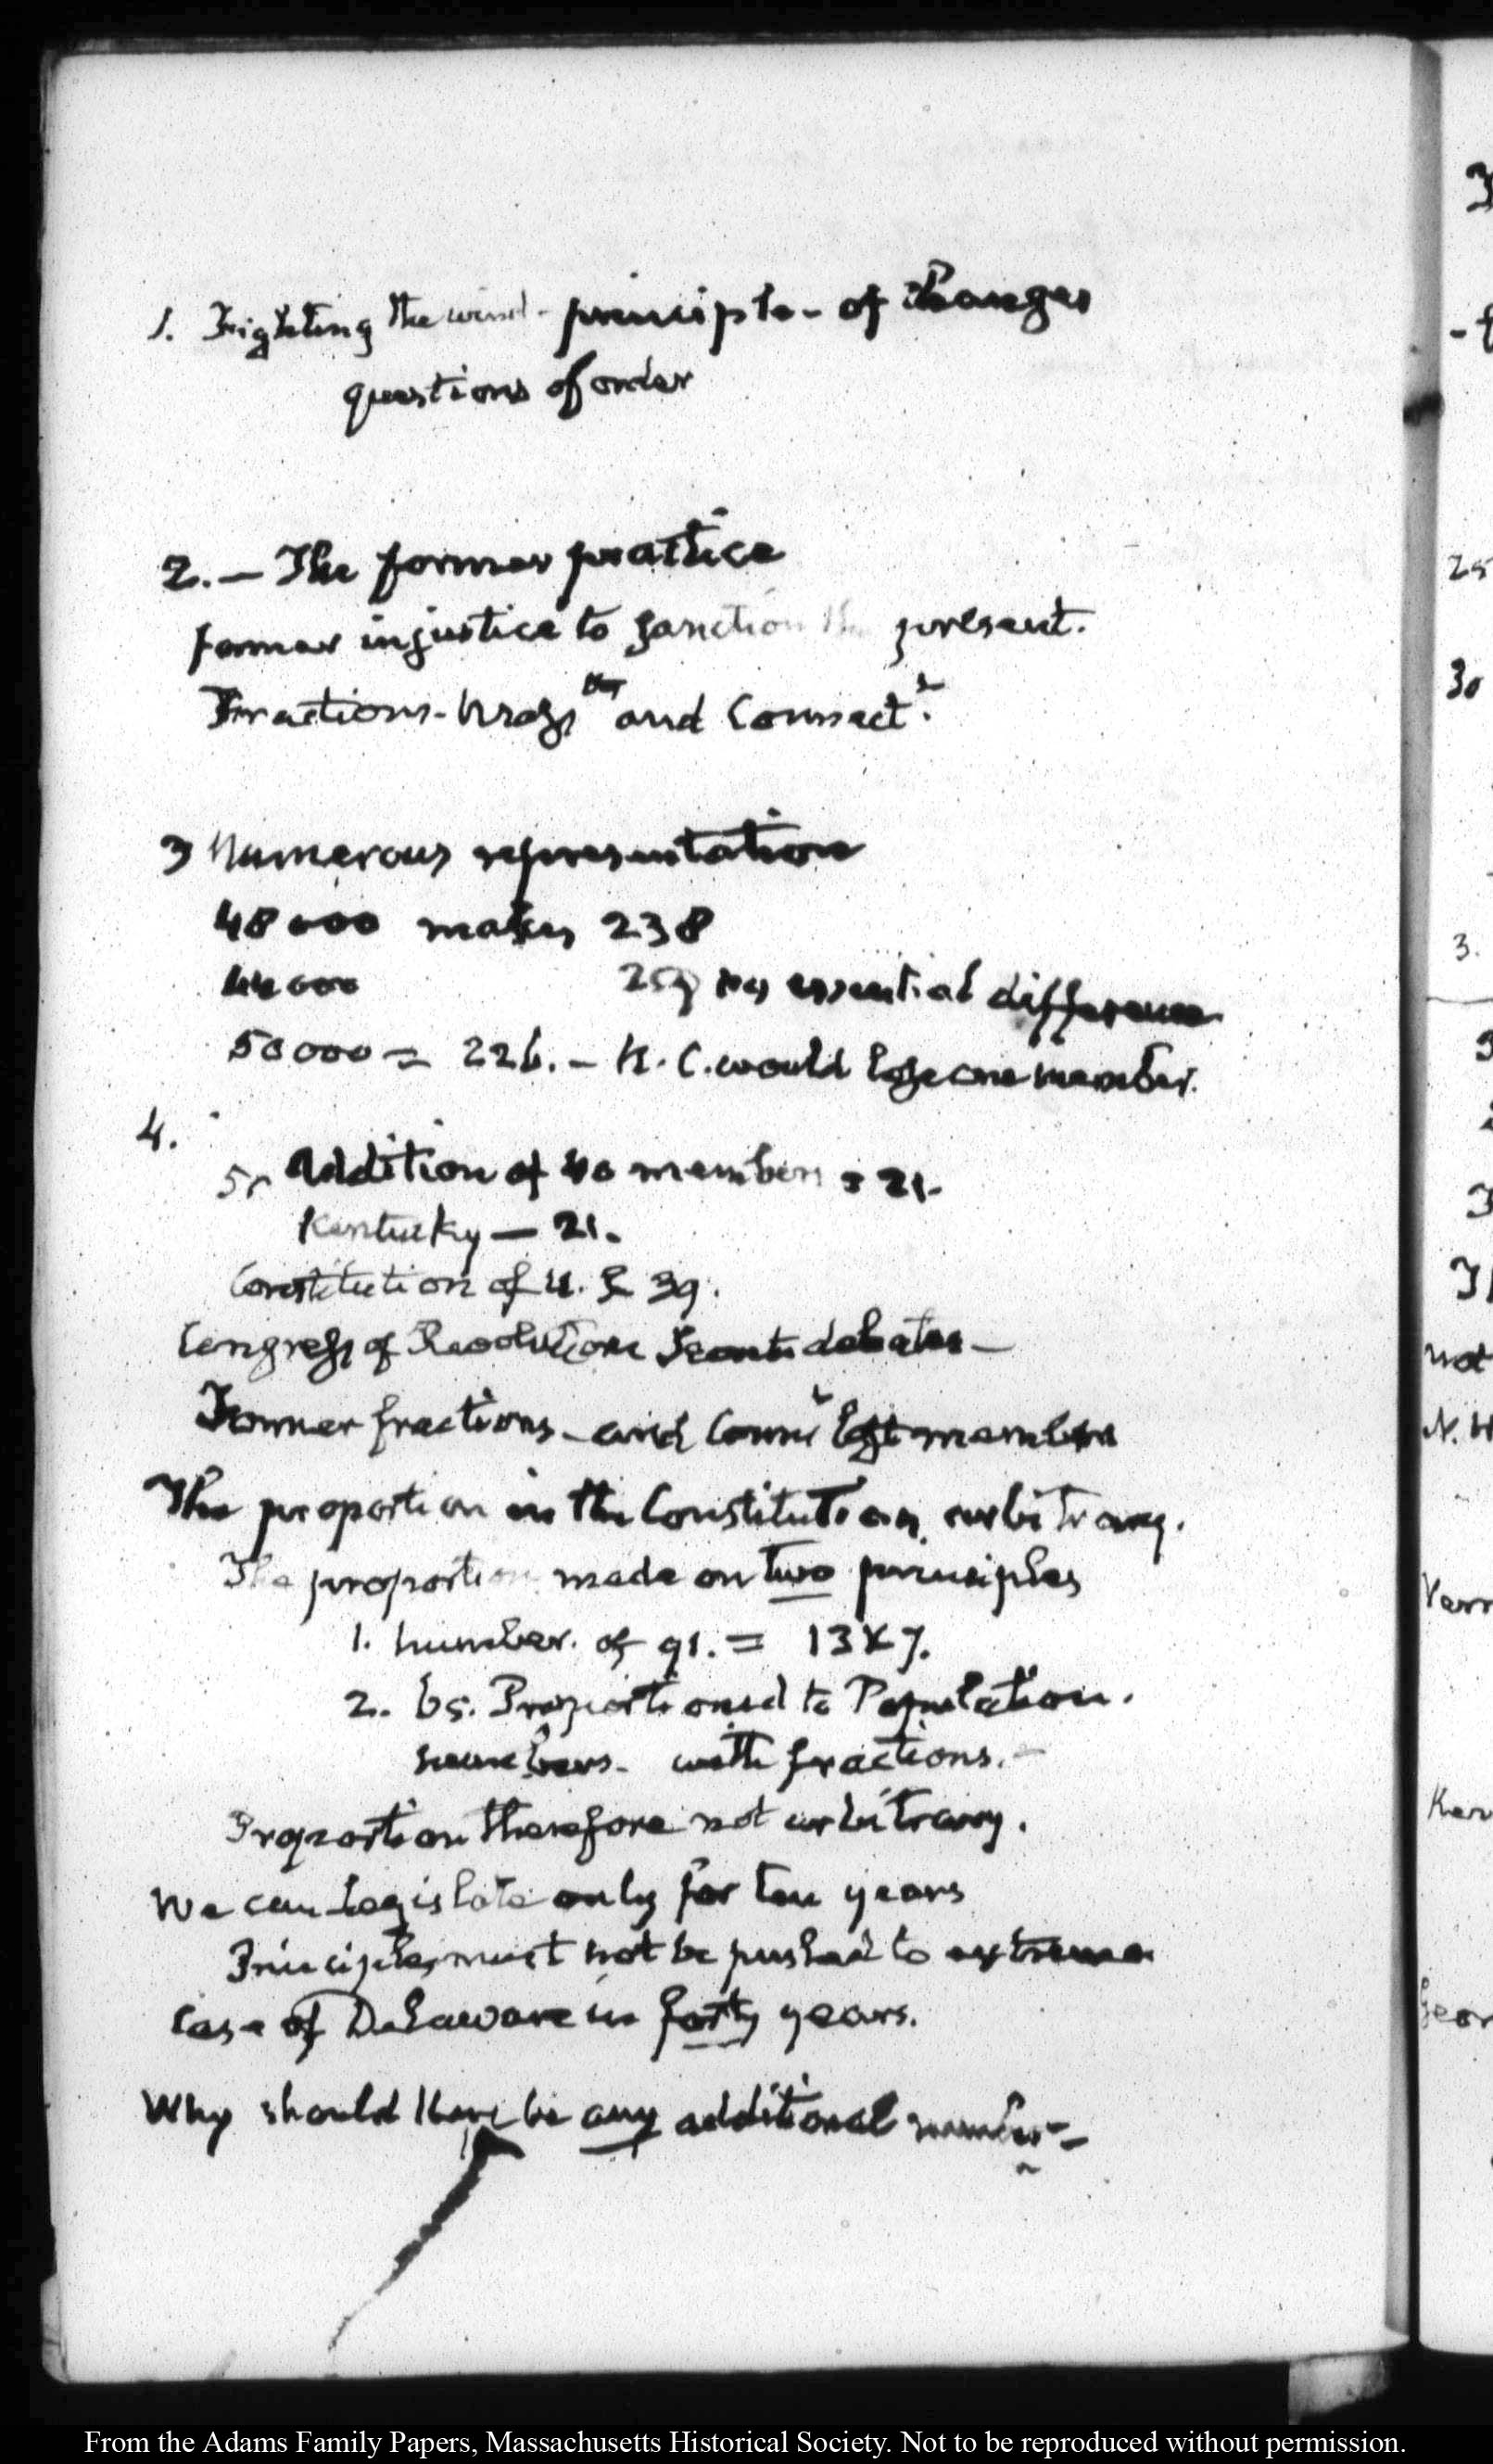 1. Fighting the wind - principle - of changes
questions of order
2. — The former practice
former injustice to sanction the present.
Fractions - Mass and Connect.t
3 Numerous representation
48000 makes 238
44000 259 no essential difference
50000 = 226. — N. C. would lose one member.
4.
Addition of 40 members = 21.
Kentucky — 21.
Constitution of U. S 39.
Congress of Revolution debates —
Former fractions - and Connt lost members
The proportion in the Constitution arbitrary.
The proportion made on two principles
1. number. of 91. = 13 x 7.
2. 65. Proportioned to Population.
numbers - with fractions. -
Proportion therefore not arbitrary.
We can legislate only for ten years
Principles must not be pushed to extreme
Case of Delaware in forty years.
Why should there be any additional member -
25
30
3.
not
N. H
Ken
Geor
From the Adams Family Papers, Massachusetts Historical Society. Not to be reproduced without permission.